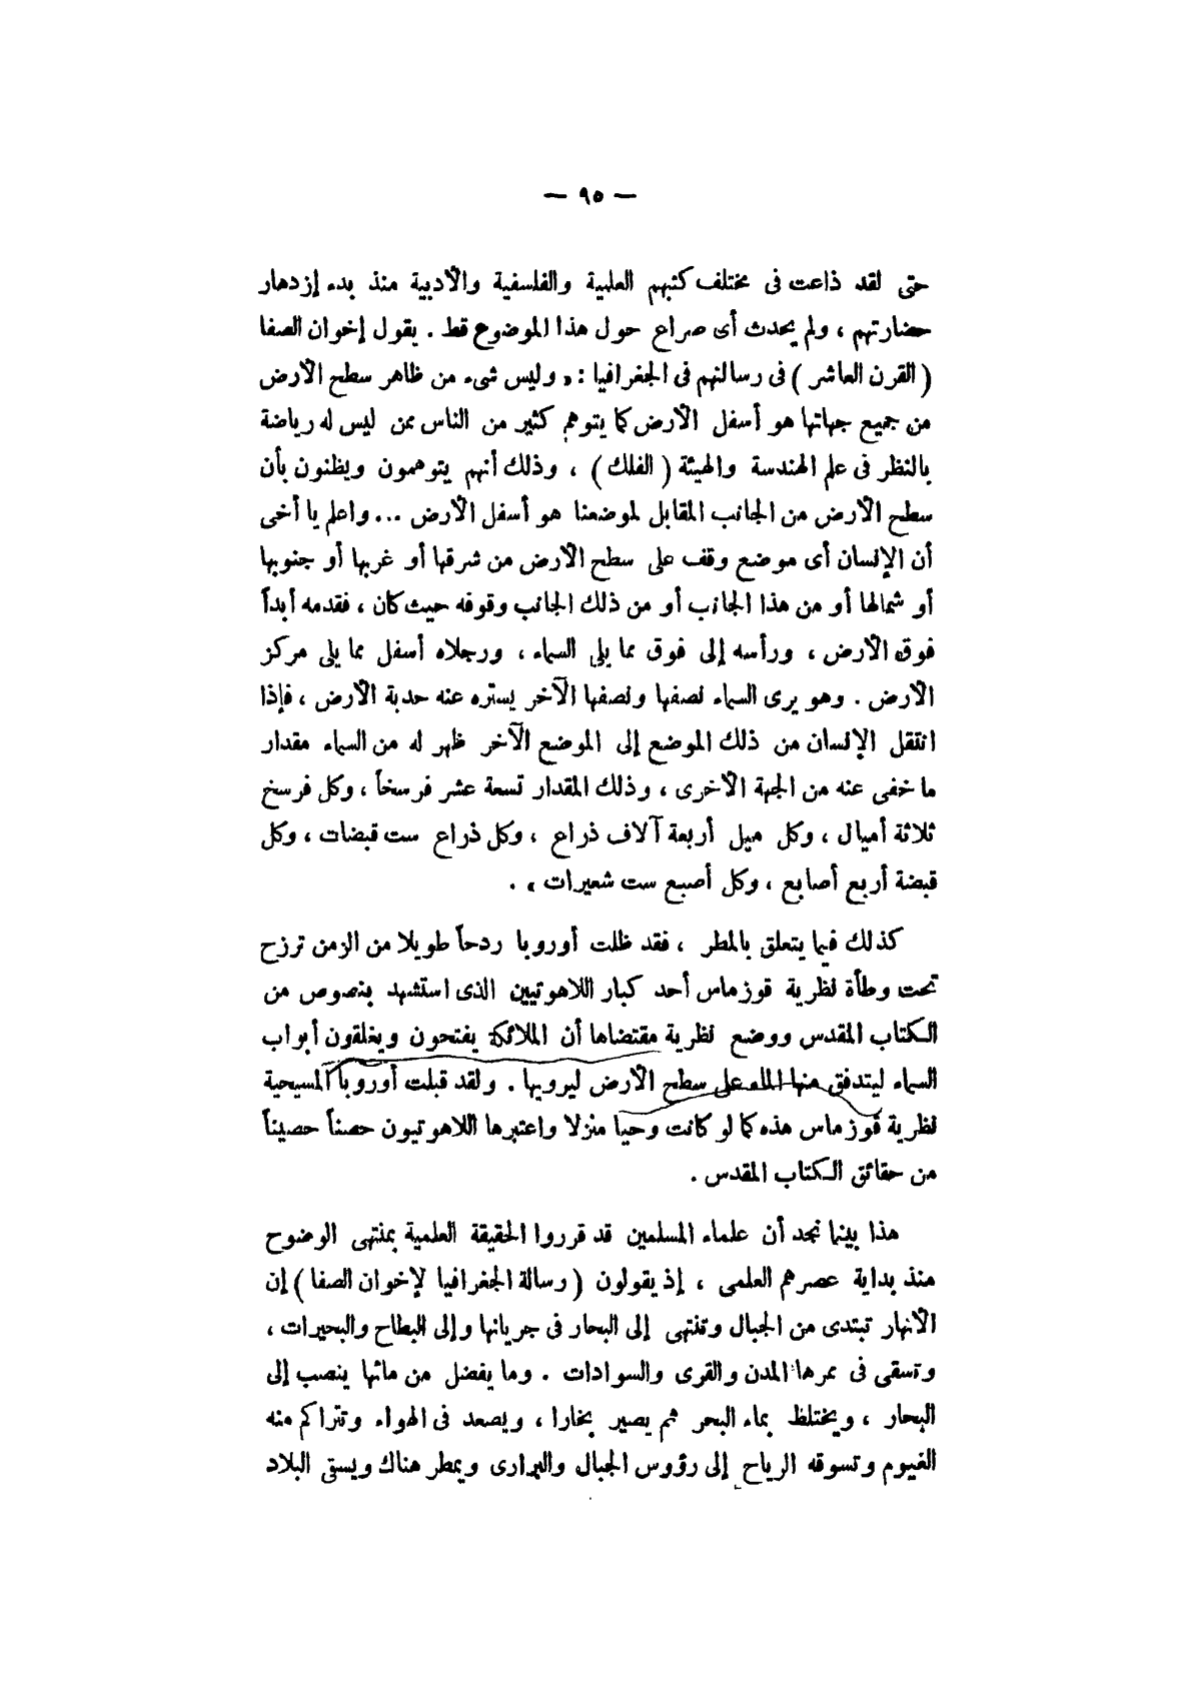 — ٩٥ —
حتى لقد ذاعت فى مختلف كتبهم العلمية والفلسفية والأدبية منذ بدء إزدهار
حضارتهم ، ولم يحدث أى صراع حول هذا الموضوع قط . يقول إخوان الصفا
( القرن العاشر ) فى رسالتهم فى الجغرافيا : « وليس شىء من ظاهر سطح الأرض
من جميع جهاتها هو أسفل الأرض كما يتوهم كثير من الناس ممن ليس له رياضة
بالنظر فى علم الهندسة والهيئة ( الفلك ) ، وذلك أنهم يتوهمون ويظنون بأن
سطح الأرض من الجانب المقابل لموضعنا هو أسفل الأرض ... واعلم يا أخى
أن الإنسان أى موضع وقف على سطح الأرض من شرقها أو غربها أو جنوبها
أو شمالها أو من هذا الجانب أو من ذلك الجانب وقوفه حيث كان ، فقدمه أبداً
فوق الأرض ، ورأسه إلى فوق مما يلى السماء ، ورجلاه أسفل مما يلى مركز
الأرض . وهو يرى السماء نصفها ونصفها الآخر يستره عنه حدبة الأرض ، فإذا
انتقل الإنسان من ذلك الموضع إلى الموضع الآخر ظهر له من السماء مقدار
ما خفى عنه من الجهة الأخرى ، وذلك المقدار تسعة عشر فرسخاً ، وكل فرسخ
ثلاثة أميال ، وكل ميل أربعة آلاف ذراع ، وكل ذراع ست قبضات ، وكل
قبضة أربع أصابع ، وكل أصبع ست شعيرات » .
كذلك فيما يتعلق بالمطر ، فقد ظلت أوروبا ردحاً طويلا من الزمن ترزح
تحت وطأة نظرية قوزماس أحد كبار اللاهوتيين الذى استشهد بنصوص من
الكتاب المقدس ووضع نظرية مقتضاها أن الملائكة يفتحون ويغلقون أبواب
السماء ليتدفق منها الماء على سطح الأرض ليرويها . ولقد قبلت أوروبا المسيحية
نظرية قوزماس هذه كما لو كانت وحياً منزلا واعتبرها اللاهوتيون حصناً حصيناً
من حقائق الكتاب المقدس .
هذا بينما نجد أن علماء المسلمين قد قرروا الحقيقة العلمية بمنتهى الوضوح
منذ بداية عصرهم العلمى ، إذ يقولون ( رسالة الجغرافيا لإخوان الصفا ) إن
الأنهار تبتدى من الجبال وتنتهى إلى البحار فى جريانها وإلى البطاح والبحيرات ،
وتسقى فى ممرها المدن والقرى والسوادات . وما يفضل من مائها ينصب إلى
البحار ، ويختلط بماء البحر ثم يصير بخارا ، ويصعد فى الهواء وتتراكم منه
الغيوم وتسوقه الرياح إلى رؤوس الجبال والبرارى ويمطر هناك ويسقى البلاد